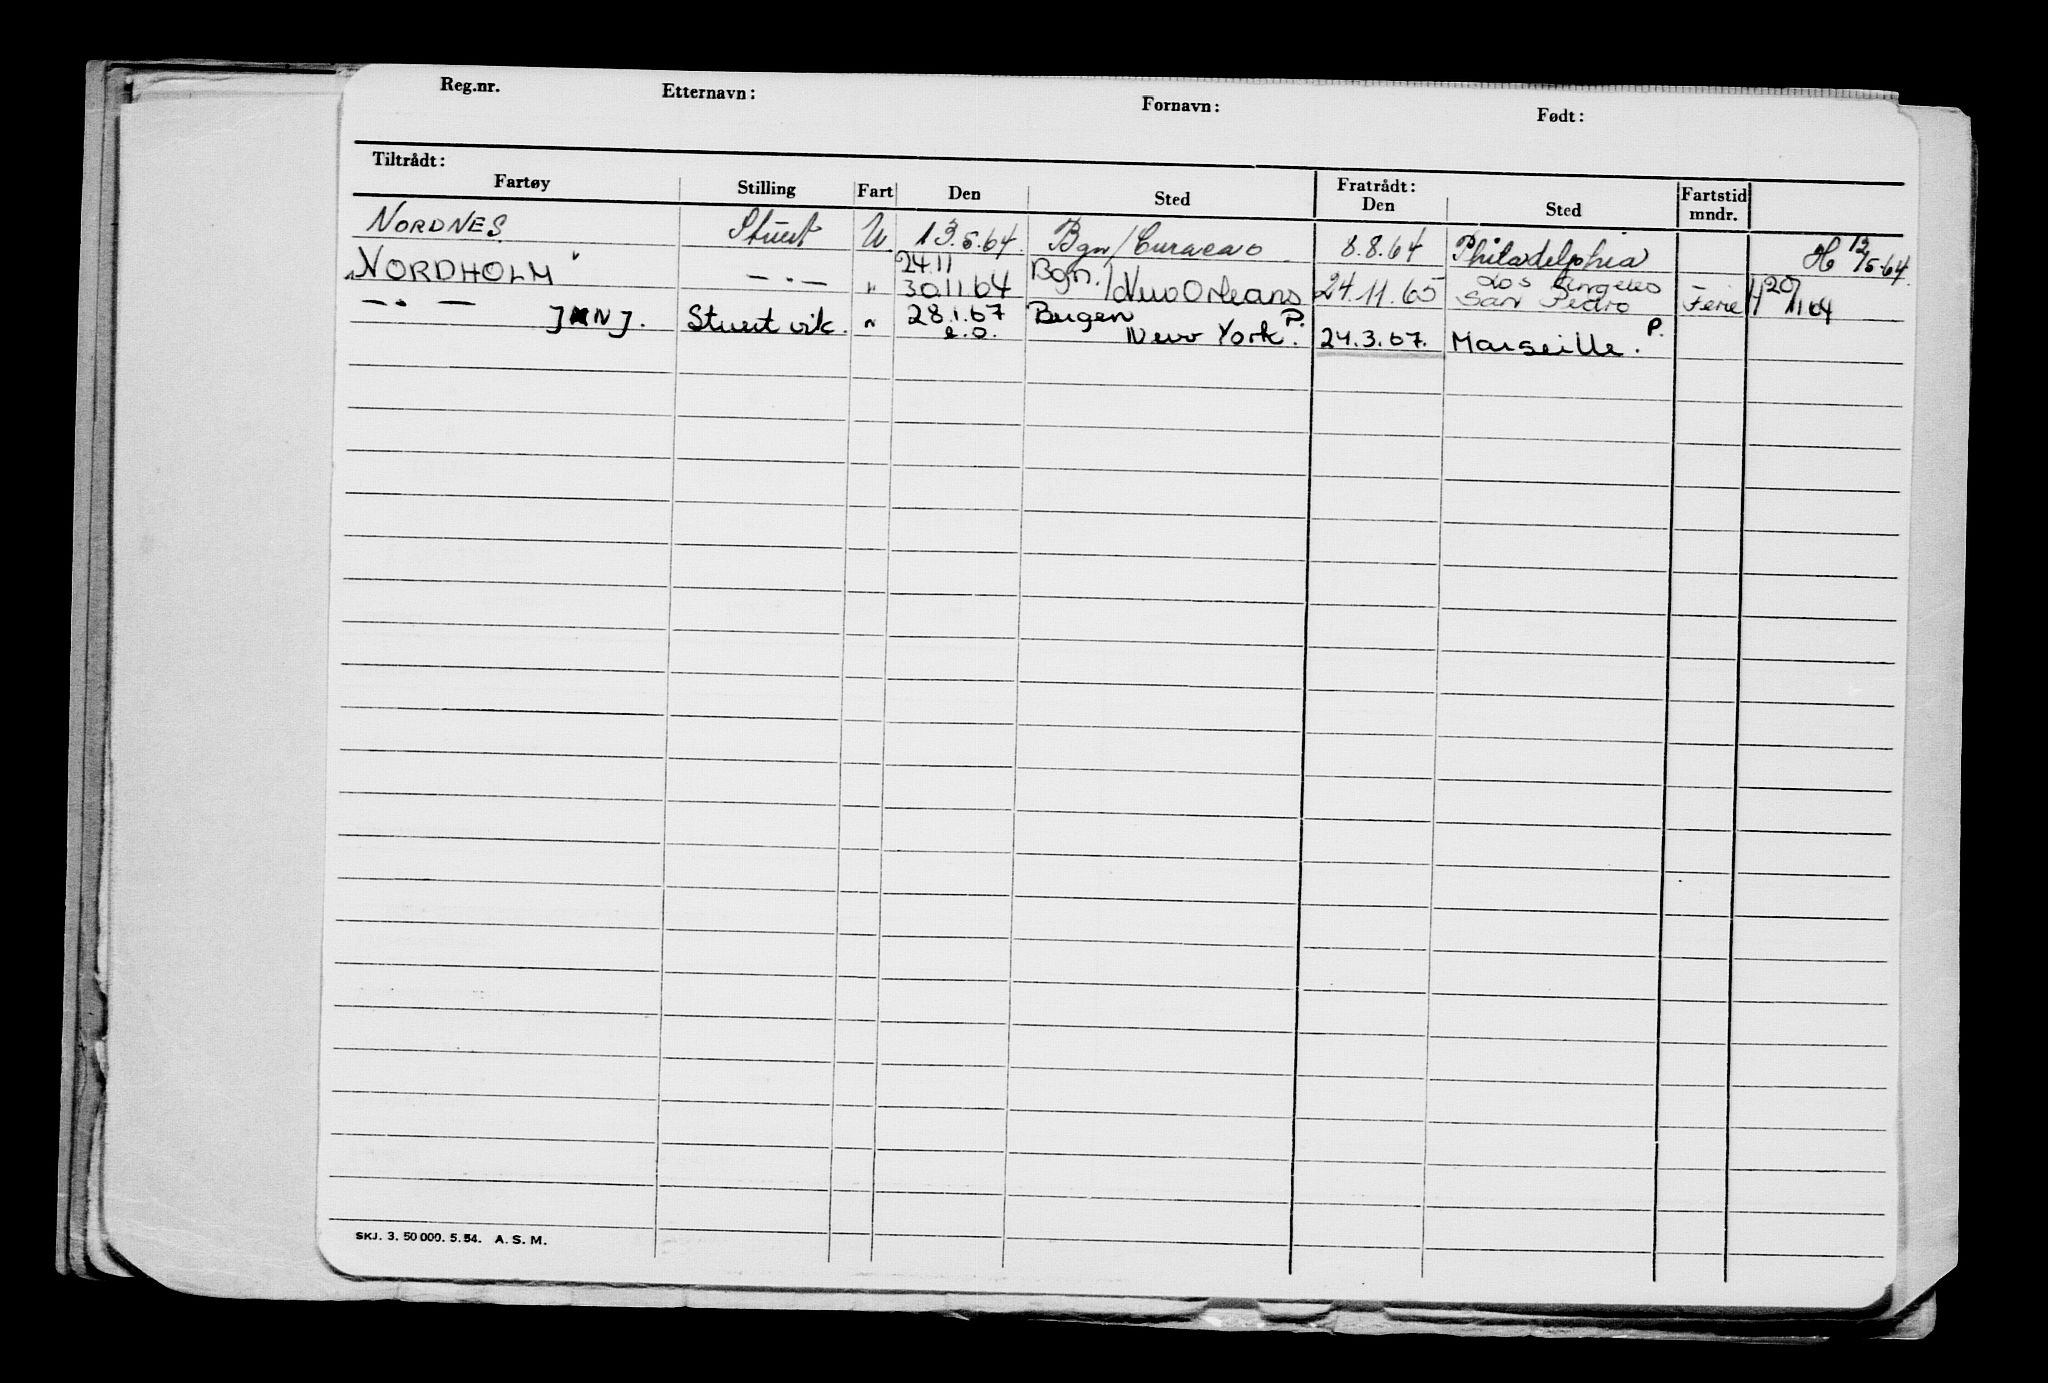 Reg.nr. Etternavn: Fornavn: Født:
Tiltrådt: Fratrådt:
Fartøy Stilling Fart Den Sted Den Sted Fartstid mndr.
NORDNES Stuert U 13.5.64. Bgn/Curacao 8.8.64 Philadelphia H 12/5-64.
NORDHOLM " — · — " 24.11 30.11.64 Bgn./New Orleans 24.11.65 Los Angeles San Pedro Ferie H 20/11 64
— · — Stuert vik. " 28.1.67 e.o. Bergen New York P. 24.3.67. Marseille. P.
SKJ. 3. 50 000. 5. 54. A. S. M.